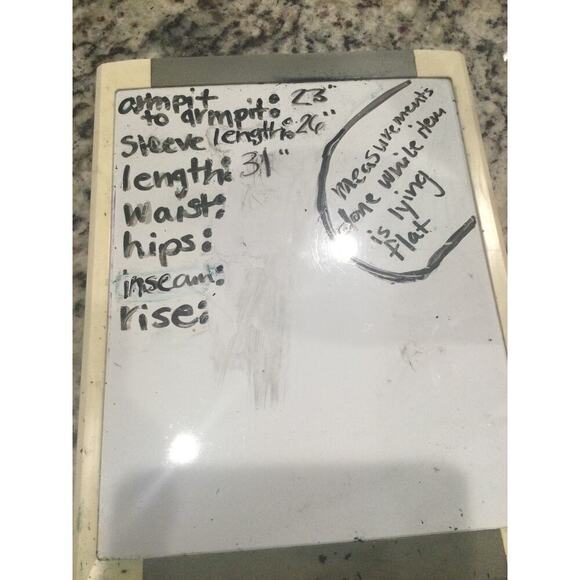 armpit
to armpit: 23"
sleeve length: 26"
length: 31"
waist:
hips:
inseam:
rise:
measurements
done while item
is lying
flat